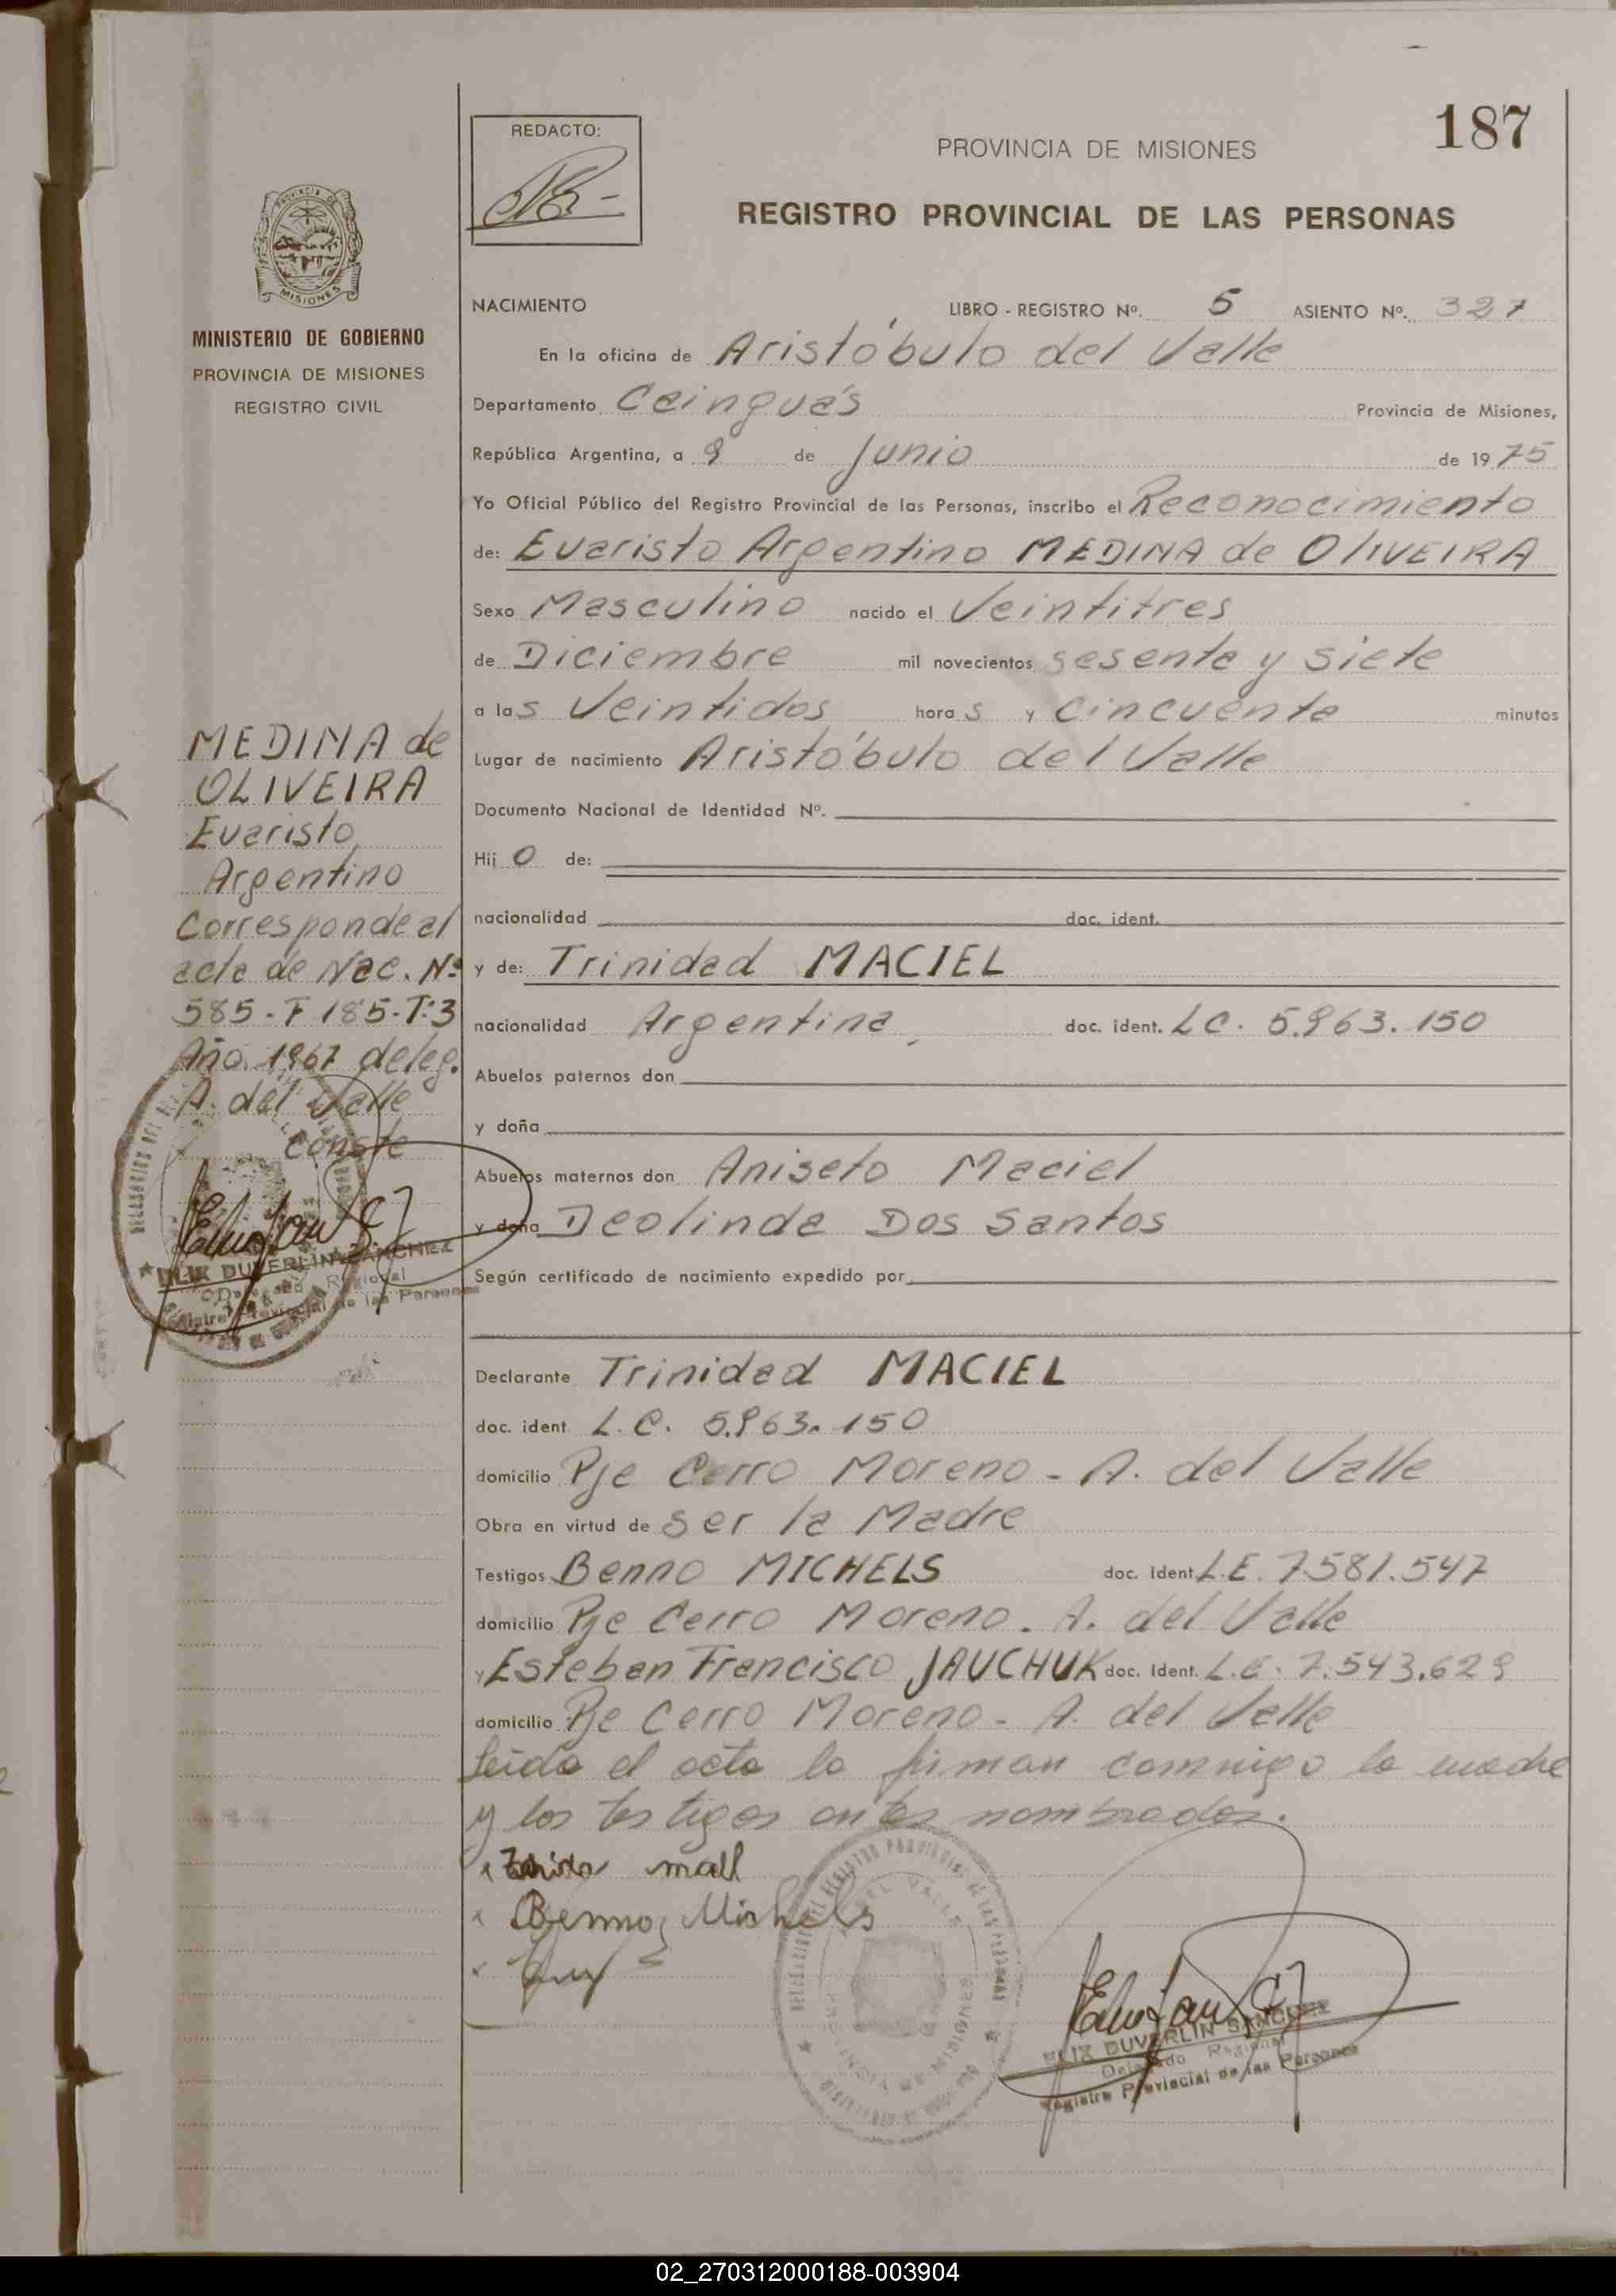 187
REDACTO:
PROVINCIA DE MISIONES
REGISTRO PROVINCIAL DE LAS PERSONAS
PROVINCIA DE
MISIONES
MINISTERIO DE GOBIERNO
PROVINCIA DE MISIONES
REGISTRO CIVIL
NACIMIENTO LIBRO - REGISTRO Nº. 5 ASIENTO Nº. 327
En la oficina de Aristóbulo del Valle
Departamento Caingués Provincia de Misiones,
República Argentina, a 9 de Junio de 1975
Yo Oficial Público del Registro Provincial de las Personas, inscribo el Reconocimiento
de: Evaristo Argentino MEDINA de OliVEIRA
Sexo Masculino nacido el Veintitres
de Diciembre mil novecientos sesenta y siete
a las Veintidos horas y cincuenta minutos
Lugar de nacimiento Aristóbulo del Valle
Documento Nacional de Identidad Nº.
Hijo de:
nacionalidad doc. ident.
y de: Trinidad MACIEL
nacionalidad Argentina, doc. ident. LC. 5.963.150
Abuelos paternos don
y doña
Abuelos maternos don Aniseto Maciel
y doña Deolinda Dos Santos
Según certificado de nacimiento expedido por
MEDINA de
OLIVEIRA
Evaristo
Argentino
Corresponde al
acta de Nac. Nº
585-F 185-T:3
Año 1967 deleg.
A. del Valle
conste
DUVERLIN SANCHEZ
Regional
Registro Provincial de las Personas
Declarante Trinidad MACIEL
doc. ident L.C. 5.963.150
domicilio Pje Cerro Moreno - A. del Valle
Obra en virtud de ser la Madre
Testigos Benno MICHELS doc. Ident. L.E. 7581.547
domicilio Pje Cerro Moreno. A. del Valle
y Esteban Francisco JAUCHUK doc. Ident. L.E. 7.543.629
domicilio Pje Cerro Moreno - A. del Valle
Leida el acta la firman conmigo la madre
y los testigos antes nombrados.
Benno Michels
DUVERLIN SANCHEZ
Delegado Regional
Registro Provincial de las Personas
02_270312000188-003904